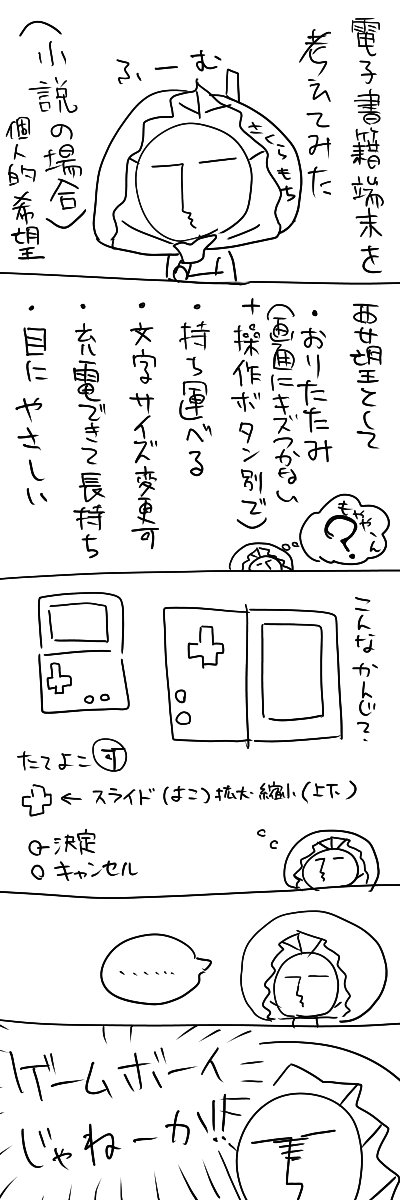 電子書籍端末を
考えてみた
ふーむ
さくらもち
(小説の場合)
個人的希望
要望として
・おりたたみ
(画面にキズつかない
+操作ボタン別で)
・持ち運べる
・文字サイズ変更可
・充電できて長持ち
・目にやさしい
もやや〜ん
?
こんなかんじで、
たてよこ可
← スライド(よこ)拡大・縮小(上下)
決定
キャンセル
......
ゲームボーイ
じゃねーか!!